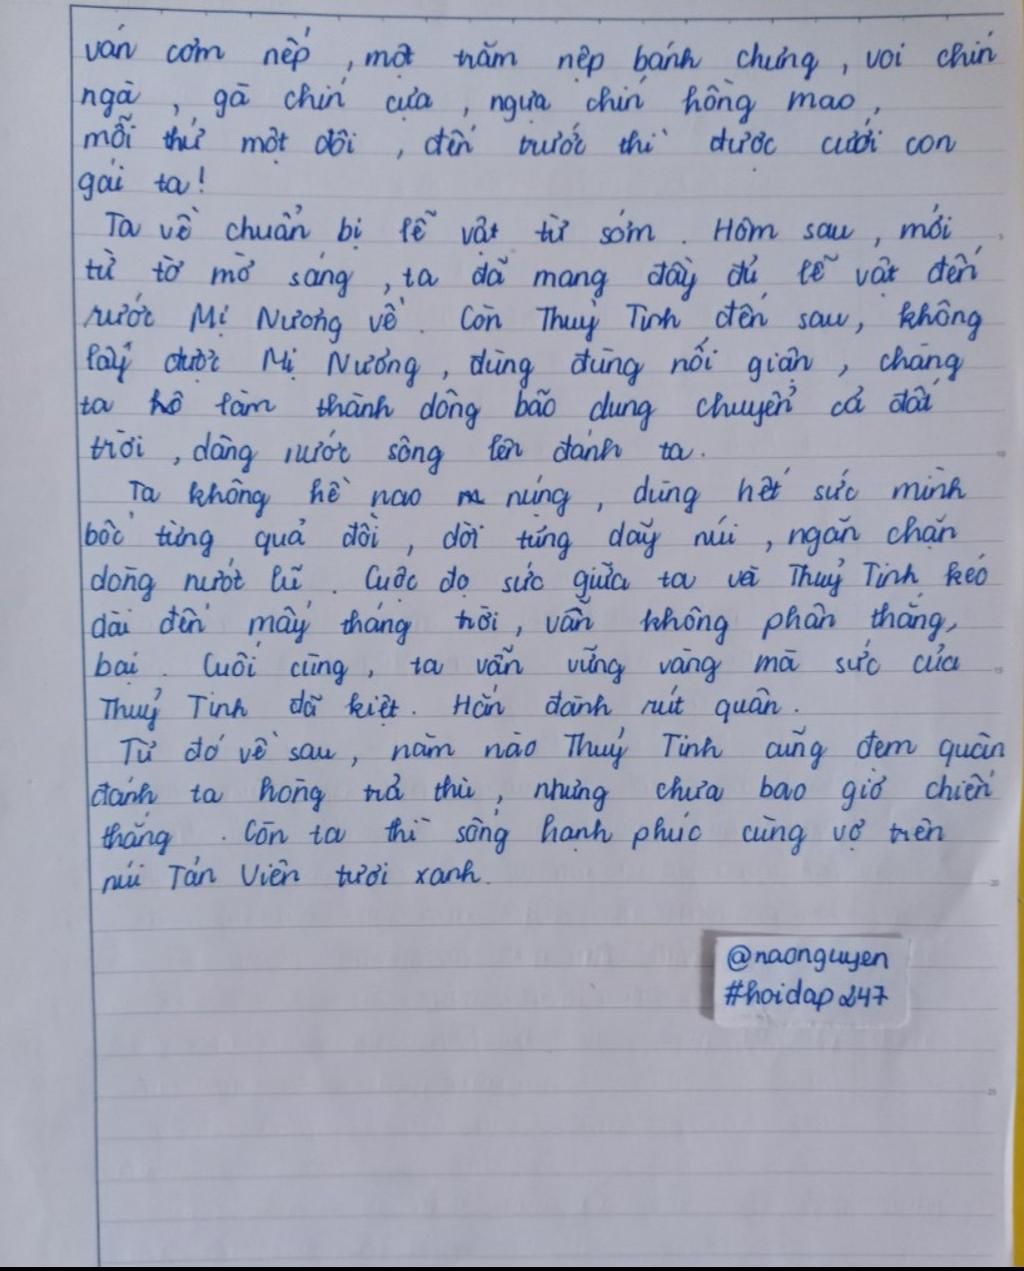 ván cơm nếp, một trăm nệp bánh chưng, voi chín
ngà, gà chín cựa, ngựa chín hồng mao,
mỗi thứ một đôi, đến trước thì được cưới con
gái ta!
Ta về chuẩn bị lễ vật từ sớm. Hôm sau, mới
từ tờ mờ sáng, ta đã mang đầy đủ lễ vật đến
rước Mị Nương về. Còn Thuỷ Tinh đến sau, không
lấy được Mị Nương, đùng đùng nổi giận, chàng
ta hô làm thành dông bão dung chuyển cả đất
trời, dâng nước sông lên đánh ta.
Ta không hề nao núng, dùng hết sức mình
bốc từng quả đồi, dời từng dãy núi, ngăn chặn
dòng nước lũ. Cuộc đọ sức giữa ta và Thuỷ Tinh kéo
dài đến mấy tháng trời, vẫn không phân thắng,
bại. Cuối cùng, ta vẫn vững vàng mà sức của
Thuỷ Tinh đã kiệt. Hắn đành rút quân.
Từ đó về sau, năm nào Thuỷ Tinh cũng đem quân
đánh ta hòng trả thù, nhưng chưa bao giờ chiến
thắng. Còn ta thì sống hạnh phúc cùng vợ trên
núi Tản Viên tươi xanh.
@naonguyen
#hoidap247